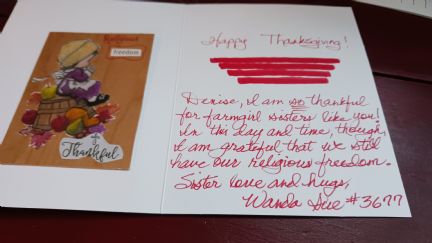 Religious
freedom
Thankful
Happy Thanksgiving!
Denise, I am so thankful
for farmgirl sisters like you!
In this day and time, though,
I am grateful that we still
have our religious freedom.
Sister love and hugs,
Wanda Sue #3677